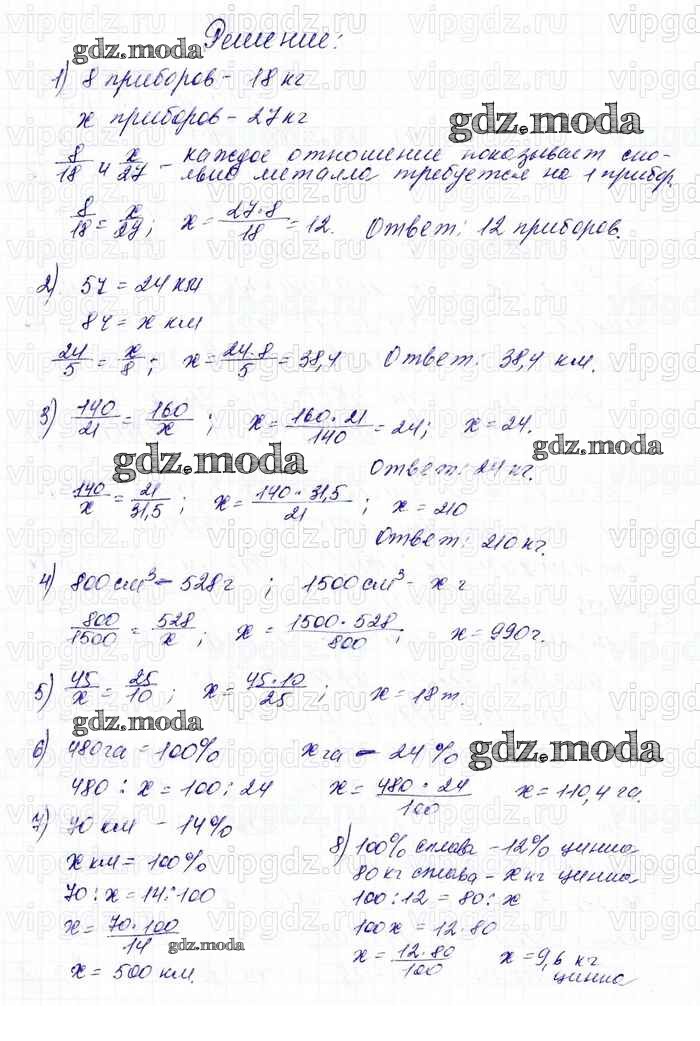 Решение:
1) 8 приборов - 18 кг
x приборов - 27 кг
8/18 и x/27 - каждое отношение показывает ско-
лько металла требуется на 1 прибор.
8/18 = x/27; x = 27·8/18 = 12. Ответ: 12 приборов.
2) 5ч = 24 км
8ч = x км
24/5 = x/8; x = 24·8/5 = 38,4 Ответ: 38,4 км.
3) 140/21 = 160/x; x = 160·21/140 = 24; x = 24.
Ответ: 24 кг.
140/x = 21/31,5; x = 140·31,5/21; x = 210
Ответ: 210 кг.
4) 800 см³ - 528 г; 1500 см³ - x г
800/1500 = 528/x; x = 1500·528/800; x = 990 г.
5) 45/x = 25/10; x = 45·10/25; x = 18 т.
6) 480 га = 100% x га - 24%
480 : x = 100 : 24 x = 480·24/100 x = 110,4 га.
7) 70 км - 14%
x км = 100%
70 : x = 14 : 100
x = 70·100/14
x = 500 км.
8) 100% сплава - 12% цинка
80 кг сплава - x кг цинка
100 : 12 = 80 : x
100x = 12·80
x = 12·80/100 x = 9,6 кг
цинка
gdz.moda
gdz.moda
gdz.moda
gdz.moda
gdz.moda
gdz.moda
gdz.moda
vipgdz.ru